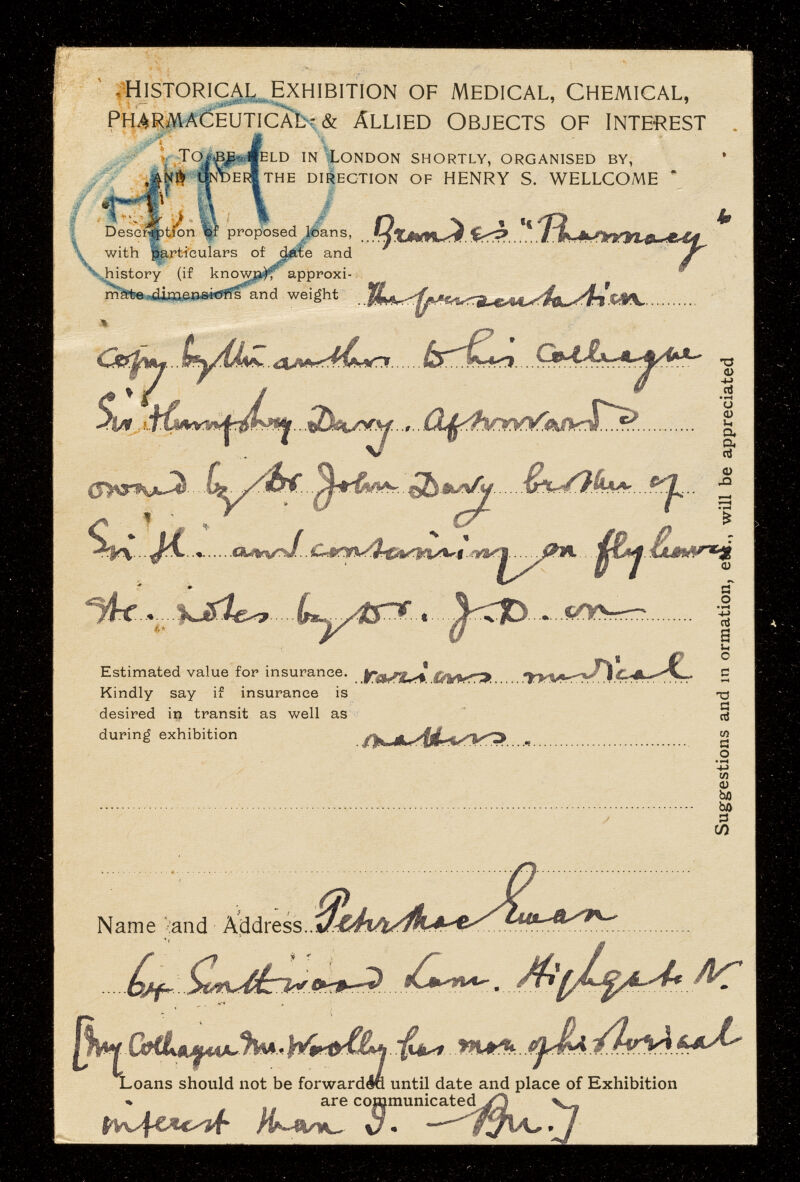 HISTORICAL EXHIBITION OF MEDICAL, CHEMICAL,
PHARMACEUTICAL & ALLIED OBJECTS OF INTEREST
TO BE HELD IN LONDON SHORTLY, ORGANISED BY,
AND UNDER THE DIRECTION OF HENRY S. WELLCOME
Description of proposed loans,
with particulars of date and
history (if known), approxi-
mate dimensions and weight
Brande's "Pharmacy"
The presentation
copy by the author to his Colleague
Sir Humphry Davy. Afterwards
owned by Dr John Davy brother of
Sir H. and containing on fly leaves
etc. notes by Dr. J.D. on
Estimated value for insurance.
Kindly say if insurance is
desired in transit as well as
during exhibition
various medical
matters.
Name and Address Peter MacEwan
64 Southwood Lane. Highgate N.
[My Colleague Mr. Woolley has more of historical
Loans should not be forwarded until date and place of Exhibition
are communicated
interest than I. —
Suggestions and in ormation, etc., will be appreciated